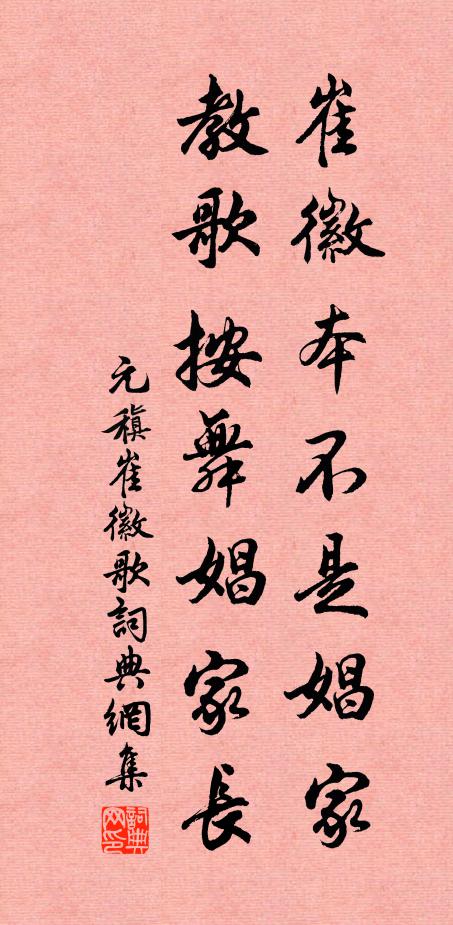 崔徽本不是娼家
教歌按舞娼家長
元稹崔徽歌詞典網集
詞典网印